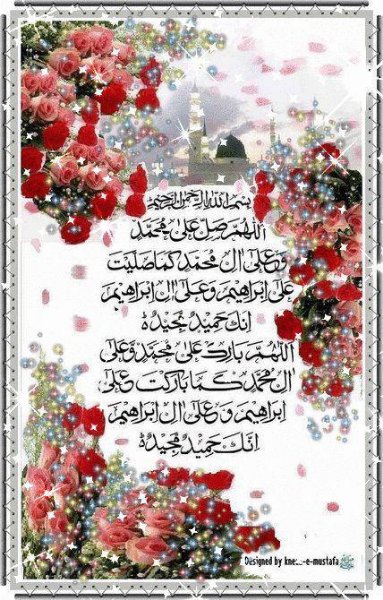 بسم الله الرحمن الرحيم
اللهم صل على محمد
وعلى ال محمد كما صليت
على ابراهيم وعلى ال ابراهيم
انك حميد مجيد
اللهم بارك على محمد وعلى
ال محمد كما باركت على
ابراهيم وعلى ال ابراهيم
انك حميد مجيد
Designed by kne:...-e-mustafa ﷺ